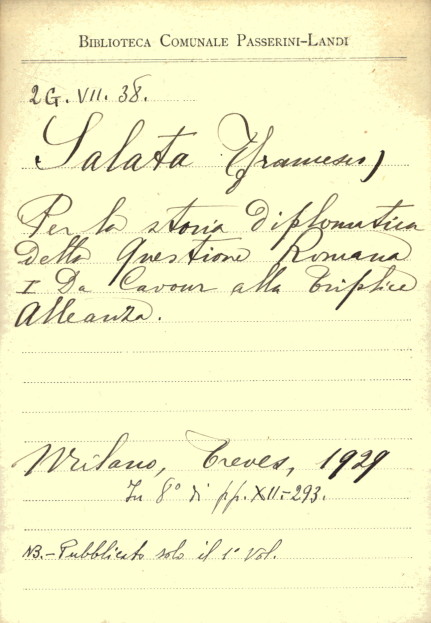 BIBLIOTECA COMUNALE PASSERINI-LANDI
2G. VII. 38.
Salata (Francesco)
Per la storia diplomatica
della Questione Romana
I Da Cavour alla Triplice
Alleanza.
Milano, Treves, 1929
In 8° di pp. XII-293.
NB.- Pubblicato solo il 1° Vol.